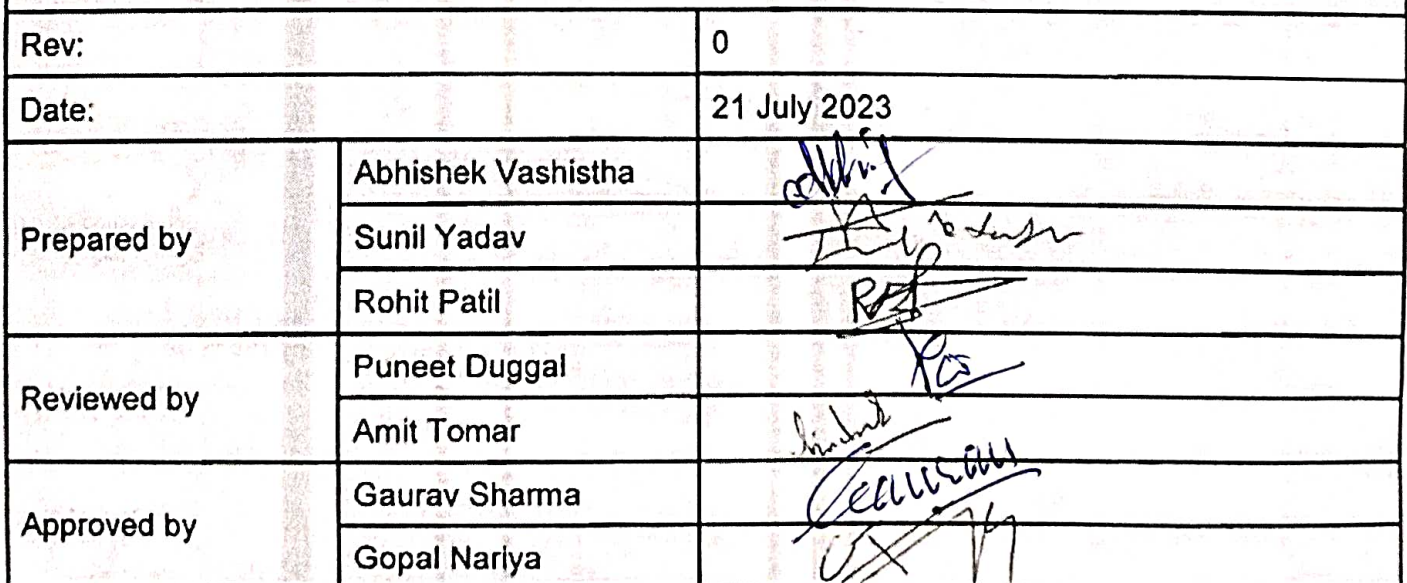 Rev: 0
Date: 21 July 2023
Prepared by
Abhishek Vashistha
Sunil Yadav
Rohit Patil
Reviewed by
Puneet Duggal
Amit Tomar
Approved by
Gaurav Sharma
Gopal Nariya